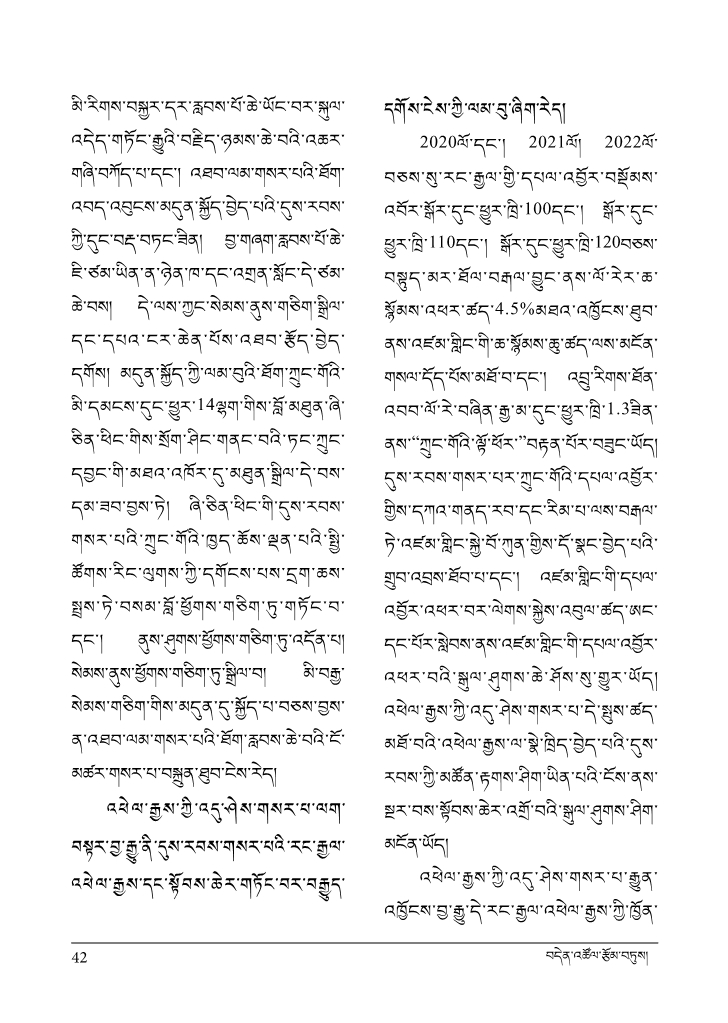 མི་རིགས་བསྐྱར་དར་རླབས་པོ་ཆེ་ཡོང་བར་སྐུལ་
འདེད་གཏོང་རྒྱུའི་བརྗིད་ཉམས་ཆེ་བའི་འཆར་
གཞི་བཀོད་པ་དང་། འཐབ་ལམ་གསར་པའི་ཐོག་
འབད་འབུངས་མདུན་སྐྱོད་བྱེད་པའི་དུས་རབས་
ཀྱི་དུང་བརྡ་བཏང་ཟིན། བྱ་གཞག་རླབས་པོ་ཆེ་
ཇི་ཙམ་ཡིན་ན་ཉེན་ཁ་དང་འགྲན་སློང་དེ་ཙམ་
ཆེ་བས། དེ་ལས་ཀྱང་སེམས་ནུས་གཅིག་སྒྲིལ་
དང་དཔའ་ངར་ཆེན་པོས་འཐབ་རྩོད་བྱེད་
དགོས། མདུན་སྐྱོད་ཀྱི་ལམ་བུའི་ཐོག་ཀྲུང་གོའི་
མི་དམངས་དུང་ཕྱུར་14ལྷག་གིས་བློ་མཐུན་ཞི་
ཅིན་ཕིང་གིས་སྲོག་ཤིང་གནང་བའི་ཏང་ཀྲུང་
དབྱང་གི་མཐའ་འཁོར་དུ་མཐུན་སྒྲིལ་དེ་བས་
དམ་ཟབ་བྱས་ཏེ། ཞི་ཅིན་ཕིང་གི་དུས་རབས་
གསར་པའི་ཀྲུང་གོའི་ཁྱད་ཆོས་ལྡན་པའི་སྤྱི་
ཚོགས་རིང་ལུགས་ཀྱི་དགོངས་པས་དྲག་ཆས་
སྤྲས་ཏེ་བསམ་བློ་ཕྱོགས་གཅིག་ཏུ་གཏོང་བ་
དང་། ནུས་ཤུགས་ཕྱོགས་གཅིག་ཏུ་འདོན་པ།
སེམས་ནུས་ཕྱོགས་གཅིག་ཏུ་སྒྲིལ་བ། མི་བརྒྱ་
སེམས་གཅིག་གིས་མདུན་དུ་སྐྱོད་པ་བཅས་བྱས་
ན་འཐབ་ལམ་གསར་པའི་ཐོག་རླབས་ཆེ་བའི་ངོ་
མཚར་གསར་པ་བསྐྲུན་ཐུབ་ངེས་རེད།
འཕེལ་རྒྱས་ཀྱི་འདུ་ཤེས་གསར་པ་ལག་
བསྟར་བྱ་རྒྱུ་ནི་དུས་རབས་གསར་པའི་རང་རྒྱལ་
འཕེལ་རྒྱས་དང་སྟོབས་ཆེར་གཏོང་བར་བརྒྱུད་
དགོས་ངེས་ཀྱི་ལམ་བུ་ཞིག་རེད།
2020ལོ་དང་། 2021ལོ། 2022ལོ་
བཅས་སུ་རང་རྒྱལ་གྱི་དཔལ་འབྱོར་བསྡོམས་
འབོར་སྒོར་དུང་ཕྱུར་ཁྲི་100དང་། སྒོར་དུང་
ཕྱུར་ཁྲི་110དང་། སྒོར་དུང་ཕྱུར་ཁྲི་120བཅས་
བསྟུད་མར་ཐོལ་བརྒལ་བྱུང་ནས་ལོ་རེར་ཆ་
སྙོམས་འཕར་ཚད་4.5%མཐའ་འཁྱོངས་ཐུབ་
ནས་འཛམ་གླིང་གི་ཆ་སྙོམས་ཆུ་ཚད་ལས་མངོན་
གསལ་དོད་པོས་མཐོ་བ་དང་། འབྲུ་རིགས་ཐོན་
འབབ་ལོ་རེ་བཞིན་རྒྱ་མ་དུང་ཕྱུར་ཁྲི་1.3ཟིན་
ནས་“ཀྲུང་གོའི་ལྟོ་ཕོར་”བརྟན་པོར་བཟུང་ཡོད།
དུས་རབས་གསར་པར་ཀྲུང་གོའི་དཔལ་འབྱོར་
གྱིས་དཀའ་གནད་རབ་དང་རིམ་པ་ལས་བརྒལ་
ཏེ་འཛམ་གླིང་སྐྱེ་བོ་ཀུན་གྱིས་དོ་སྣང་བྱེད་པའི་
གྲུབ་འབྲས་ཐོབ་པ་དང་། འཛམ་གླིང་གི་དཔལ་
འབྱོར་འཕར་བར་ལེགས་སྐྱེས་འབུལ་ཚད་ཨང་
དང་པོར་སླེབས་ནས་འཛམ་གླིང་གི་དཔལ་འབྱོར་
འཕར་བའི་སྐུལ་ཤུགས་ཆེ་ཤོས་སུ་གྱུར་ཡོད།
འཕེལ་རྒྱས་ཀྱི་འདུ་ཤེས་གསར་པ་དེ་སྤུས་ཚད་
མཐོ་བའི་འཕེལ་རྒྱས་ལ་སྣེ་ཁྲིད་བྱེད་པའི་དུས་
རབས་ཀྱི་མཚོན་རྟགས་ཤིག་ཡིན་པའི་ངོས་ནས་
སྔར་བས་སྟོབས་ཆེར་འགྲོ་བའི་སྐུལ་ཤུགས་ཤིག་
མངོན་ཡོད།
འཕེལ་རྒྱས་ཀྱི་འདུ་ཤེས་གསར་པ་རྒྱུན་
འཁྱོངས་བྱ་རྒྱུ་དེ་རང་རྒྱལ་འཕེལ་རྒྱས་ཀྱི་ཁྲོན་
42
བདེན་འཚོལ་རྩོམ་བཏུས།